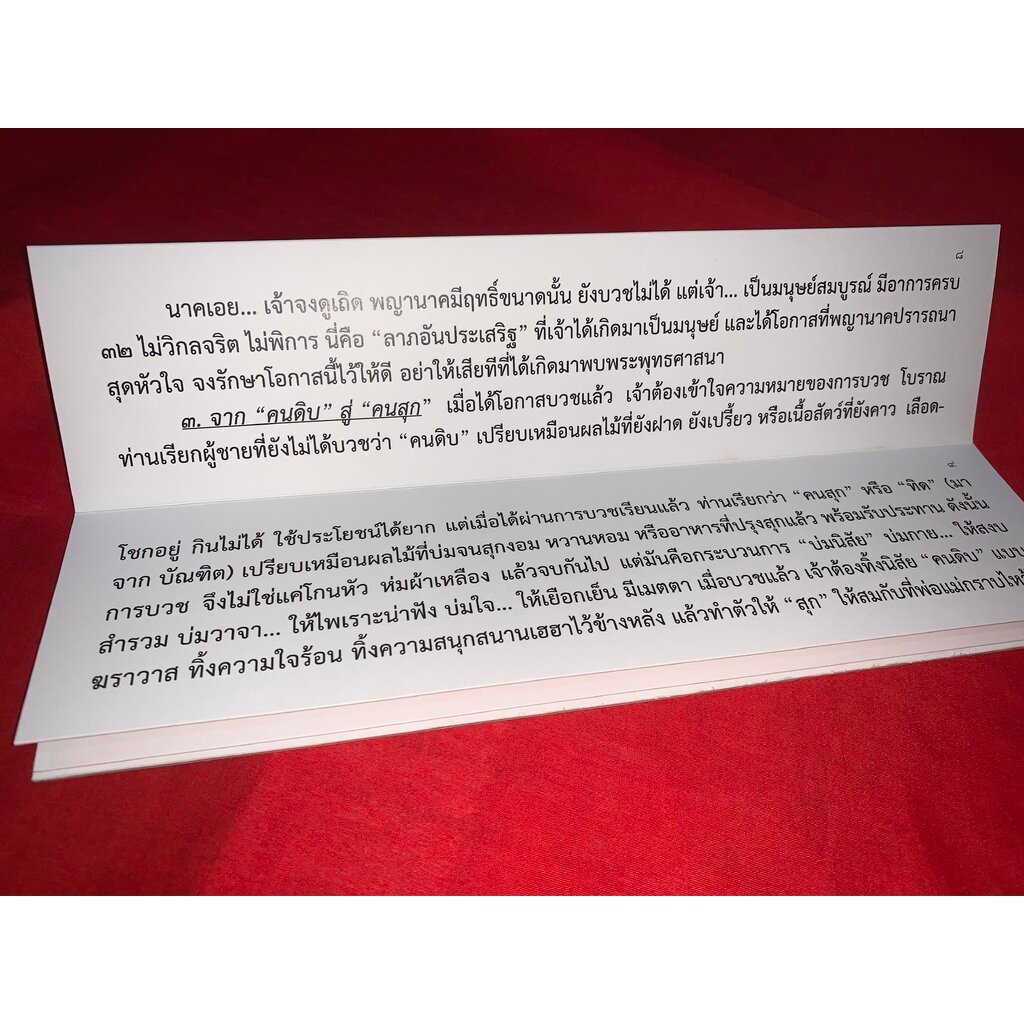 ๘
นาคเอย... เจ้าจงดูเถิด พญานาคมีฤทธิ์ขนาดนั้น ยังบวชไม่ได้ แต่เจ้า... เป็นมนุษย์สมบูรณ์ มีอาการครบ
๓๒ ไม่วิกลจริต ไม่พิการ นี่คือ “ลาภอันประเสริฐ” ที่เจ้าได้เกิดมาเป็นมนุษย์ และได้โอกาสที่พญานาคปรารถนา
สุดหัวใจ จงรักษาโอกาสนี้ไว้ให้ดี อย่าให้เสียทีที่ได้เกิดมาพบพระพุทธศาสนา
๓. จาก “คนดิบ” สู่ “คนสุก” เมื่อได้โอกาสบวชแล้ว เจ้าต้องเข้าใจความหมายของการบวช โบราณ
ท่านเรียกผู้ชายที่ยังไม่ได้บวชว่า “คนดิบ” เปรียบเหมือนผลไม้ที่ยังฝาด ยังเปรี้ยว หรือเนื้อสัตว์ที่ยังคาว เลือด-
๙
โชกอยู่ กินไม่ได้ ใช้ประโยชน์ได้ยาก แต่เมื่อได้ผ่านการบวชเรียนแล้ว ท่านเรียกว่า “คนสุก” หรือ “ทิด” (มา
จาก บัณฑิต) เปรียบเหมือนผลไม้ที่บ่มจนสุกงอม หวานหอม หรืออาหารที่ปรุงสุกแล้ว พร้อมรับประทาน ดังนั้น
การบวช จึงไม่ใช่แค่โกนหัว ห่มผ้าเหลือง แล้วจบกันไป แต่มันคือกระบวนการ “บ่มนิสัย” บ่มกาย... ให้สงบ
สำรวม บ่มวาจา... ให้ไพเราะน่าฟัง บ่มใจ... ให้เยือกเย็น มีเมตตา เมื่อบวชแล้ว เจ้าต้องทิ้งนิสัย “คนดิบ” แบบ
ฆราวาส ทิ้งความใจร้อน ทิ้งความสนุกสนานเฮฮาไว้ข้างหลัง แล้วทำตัวให้ “สุก” ให้สมกับที่พ่อแม่กราบไหว้